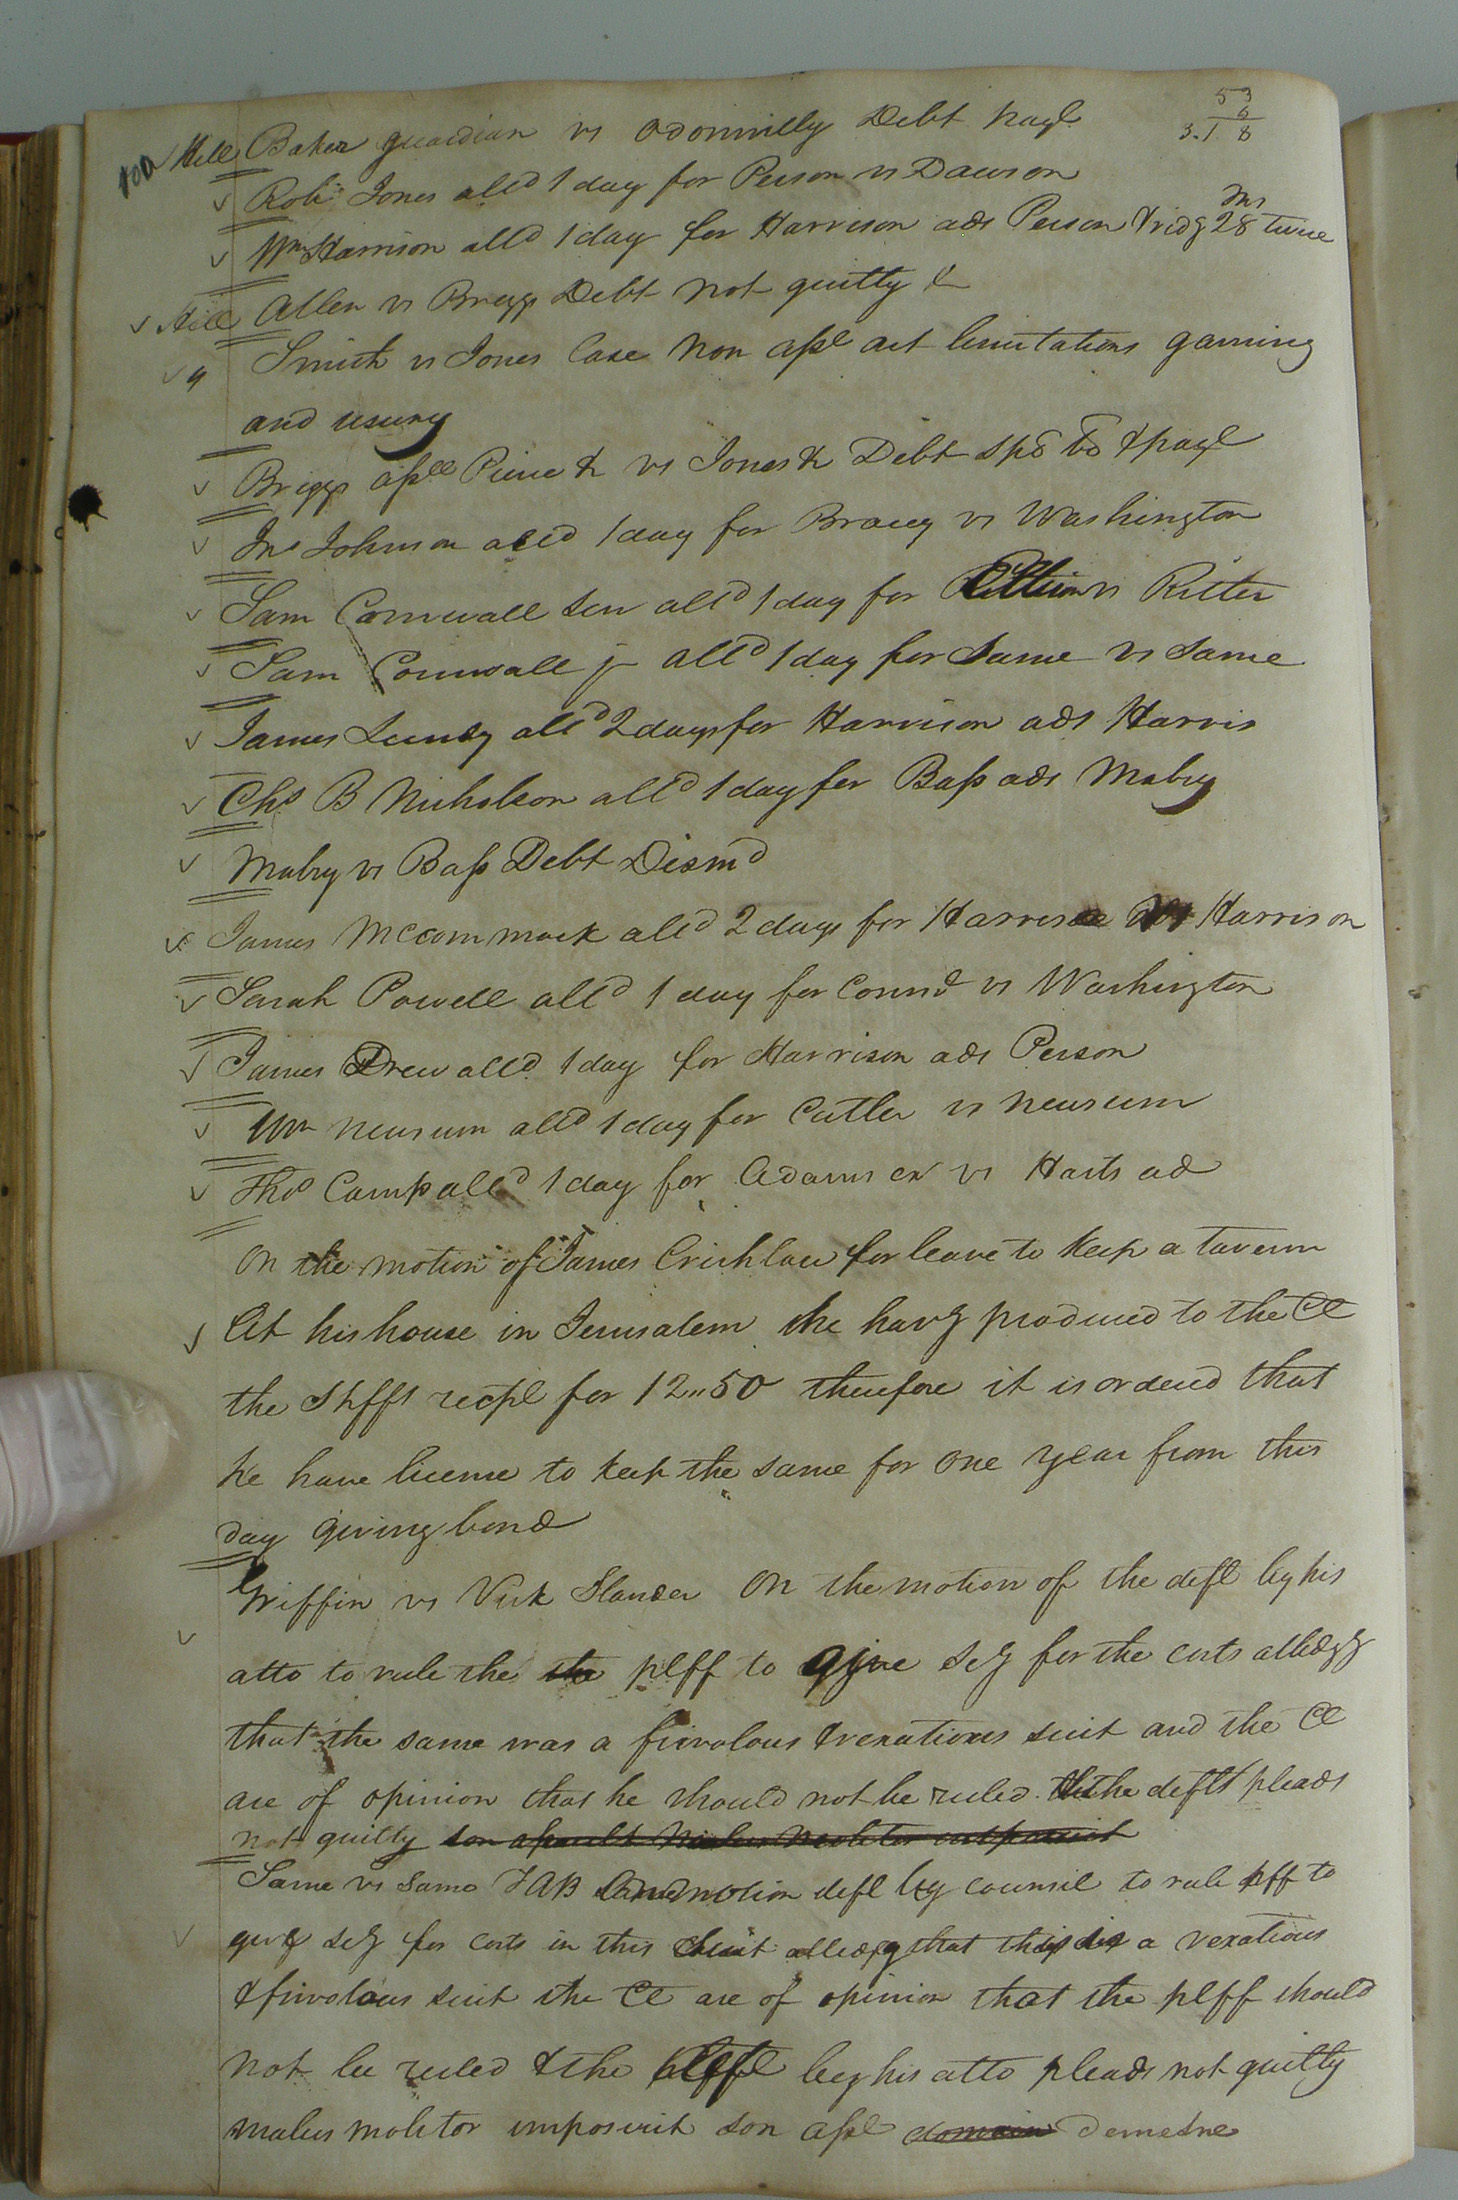 53
6
3.18
Hill Baker guardian vs Odonnilly Debt payl
Robt Jones alld 1 day for Person vs Dawson
Wm Harrison alld 1 day for Harrison ads Person & ridg 28 ms twice
Hill Allen vs Briggs Debt not guilty &
Smith vs Jones Case Non assl act limitations gaming
and usury
Briggs assee Pierce & vs Jones & Debt spo bo & payl
Jno Johnson alld 1 day for Bracey vs Washington
Sam Cornwall sen alld 1 day for vs Ritter
Sam Cornwall jr alld 1 day for Same vs Same
James Lundy alld 2 days for Harrison ads Harris
Chs B Nicholson alld 1 day for Bass ads Mabry
Mabry vs Bass Debt Dismd
James Mccommack alld 2 days for Harris Harrison
Sarah Powell alld 1 day for Commd vs Washington
James Drew alld 1 day for Harrison ads Person
Wm Newsum alld 1 day for Cutler vs Newsum
Thos Camp alld 1 day for Adams ex vs Harts ad
On the motion of James Crichlow for leave to keep a tavern
At his house in Jerusalem he havg produced to the Ct
the Shffs recpt for 12..50 therefore it is ordered that
he have license to keep the same for one year from this
day giving bond
Griffin vs Vick Slander On the motion of the deft by his
atto to rule the the plff to give scy for the costs alledgg
that the same was a frivolous & vexatious suit and the Ct
are of opinion that he should not be ruled the deft pleads
not guilty son assault
Same vs Same TAB motion deft by counsil to rule plff to
give scy for costs in this suit alledgg that this is a vexatious
& frivolous suit the Ct are of opinion that the plff should
not be ruled & the deft by his atto pleads not guilty
maleus molitor imposuit son assl demesne